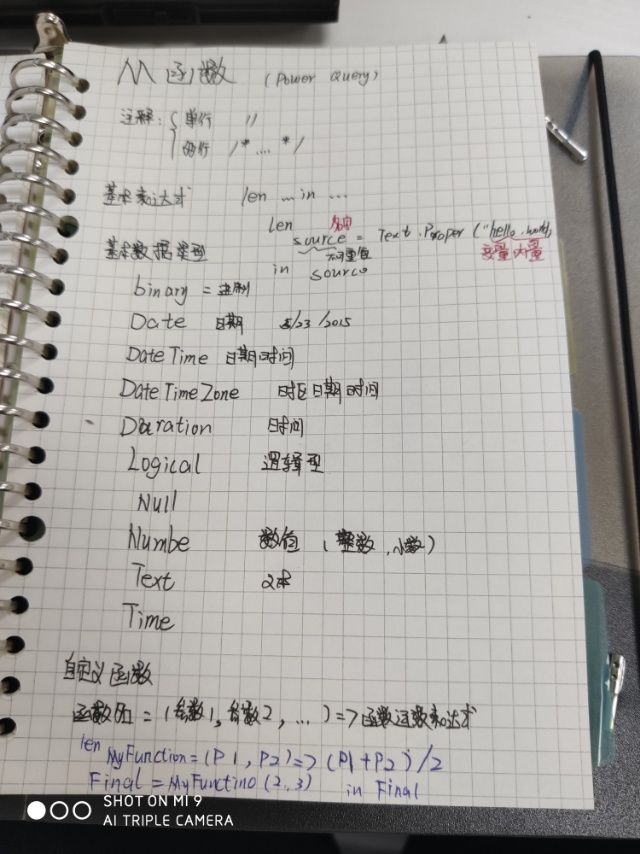 M 函数 (Power Query)
注释: 单行 //
多行 /* .... */
基本表达式 len ... in ...
len 名字
source = Text.Proper ("hello world
基本数据类型 不可重复 变量内量
in source
binary 二进制
Date 日期 2/23/2015
DateTime 日期时间
DateTimeZone 时区日期时间
Duration 时间
Logical 逻辑型
Null
Numbe 数值 (整数, 小数)
Text 文本
Time
自定义函数
函数名 = (参数1, 参数2, ...) => 函数运数表达式
len MyFunction = (P1, P2) => (P1+P2)/2
Final = MyFunctino(2,3) in Final
SHOT ON MI 9
AI TRIPLE CAMERA